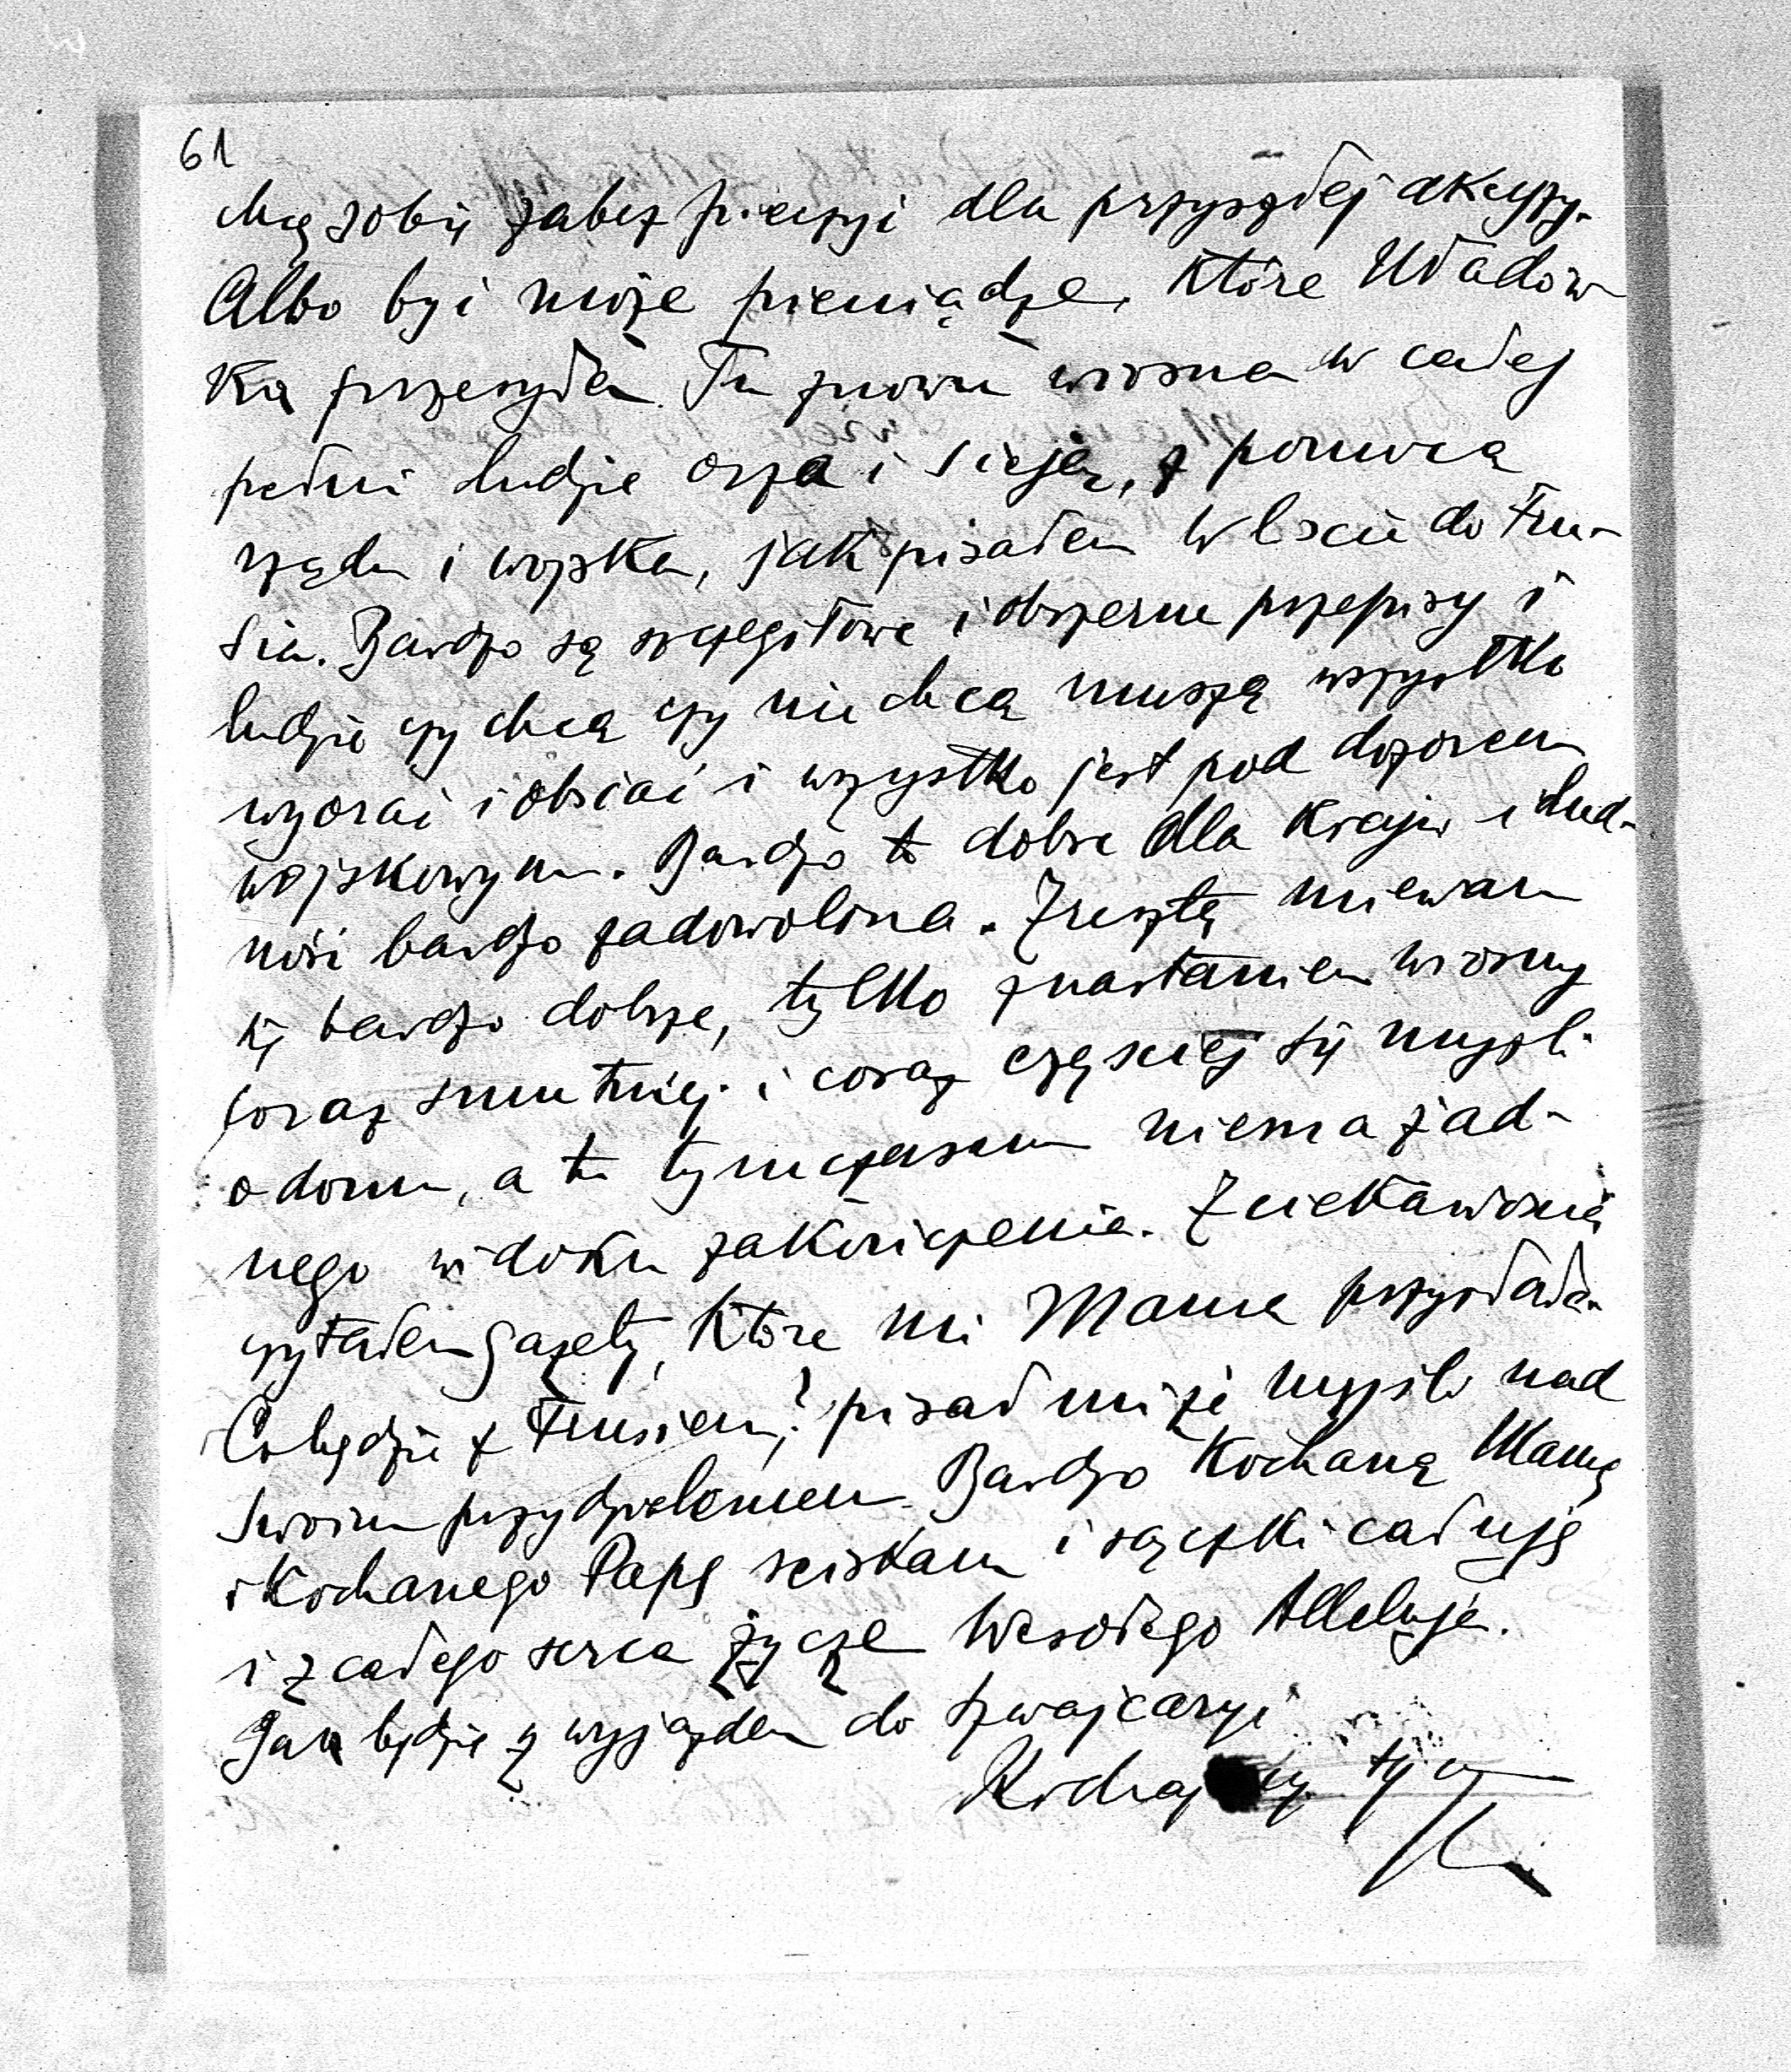 61
chcę sobie zabezpieczyć dla przyszłej akcyzy.
Albo być może pieniądze, które Władów-
ka przesyła. Tu znowu wiosna w całej
pełni ludzie orzą i sieją, z pomocą
rządu i wojska, jak pisałem w liście do Tru-
sia. Bardzo są szczegółowe i obszerne przepisy i
ludzie czy chcą czy nie chcą muszą wszystko
wyorać i obsiać i wszystko jest pod dozorem
wojskowym. Bardzo to dobre dla kraju i lud-
ność bardzo zadowolona. Zresztą miewam
się bardzo dobrze, tylko z nastaniem wiosny
coraz smutniej i coraz częściej się myśli
o domu, a tu tymczasem niema żad-
nego widoku zakończenia. Z ciekawością
czytałem gazety, które mi Mama przysłała.
Co będzie z Trusiem? pisał mi że myśli nad
swoim przydzieleniem. Bardzo Kochaną Mamę
i Kochanego Papę ściskam i rączki całuję
i z całego serca życzę Wesołego Alleluja.
Jak będzie z wyjazdem do Szwajcaryi
syn